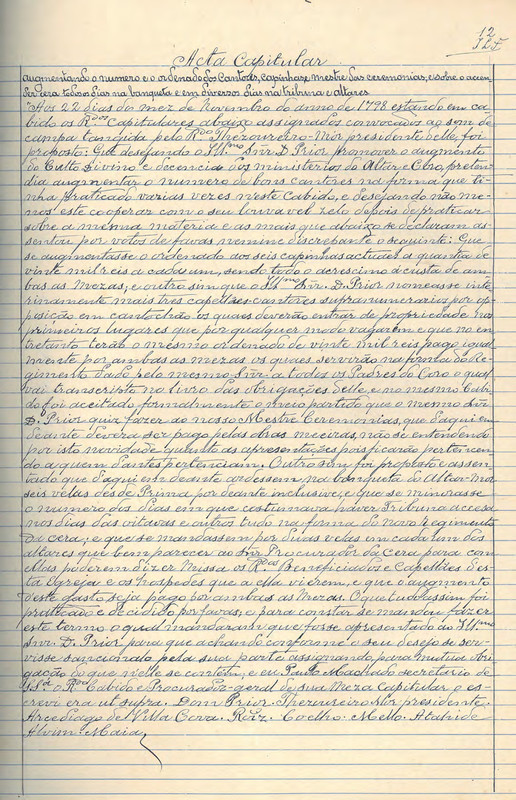 12
Acta Capitular
augmentando o numero e o ordenado dos Cantores, capinhas e mestre das ceremonias; e sobre o accen-
der cera todos os dias na banqueta e em diversos dias na tribuna e altares
"Aos 22 dias do mez de Novembro do anno de 1798 estando em ca-
bido os R.dos Capitulares abaixo assignados convocados ao som de
campa tangida pelo R.do Thezoureiro-Mor presidente delle, foi
proposto: Que desejando o Ill.mo Snr. D. Prior promover o augmento
do Culto Divino e decencia dos ministerios do Altar e Coro, preten-
dia augmentar o numero de bons cantores na forma que ti-
nha praticado varias vezes neste Cabido, e desejando não me-
nos este cooperar com o seu louvavel zelo depois de praticar
sobre a mesma materia e as mais que abaixo se declaram as-
sentou por votos de favas nemine discrepante o seguinte: Que
se augmentasse o ordenado aos seis capinhas actuaes a quantia de
vinte mil reis a cada um, sendo todo o acrescimo á custa de am-
bas as Mezas, e outro sim que o Ill.mo Snr. D. Prior nomeasse inte-
rinamente mais tres capellães-cantores supranumerarios por op-
posição em cantochão os quaes deverão entrar de propriedade nos
primeiros lugares que por qualquer modo vagarem e que no en-
tretanto terão o mesmo ordenado de vinte mil reis pago igual-
mente por ambas as mezas os quaes servirão na forma do Re-
gimento dado pelo mesmo Snr. a todos os Padres do Coro o qual
vai transcripto no livro das Obrigações delle e no mesmo Cabi-
do foi acceitado formalmente o meio partido que o mesmo Snr.
D. Prior quiz fazer ao nosso Mestre Ceremonias, que d'aqui em
deante devera ser pago pelas obras meiras não se entendendo
por isto novidade quanto as apresentações pois ficarão pertencen-
do a quem d'antes pertenciam. Outro sim foi proposto e assen-
tado que d'aqui em deante ardessem na banqueta do Altar-Mor
seis velas desde Prima por deante inclusive, e que se minorasse
o numero dos dias em que costumava haver Tribuna accesa
nos dias das oitavas e outros tudo na forma do Novo Regimento
da cera; e que se mandassem por duas velas em cada um dos
altares que bem parecer ao Snr. Procurador da Cera para com
ellas poderem dizer Missa os R.dos Beneficiados e Capellães des-
ta Igreja e os hospedes que a ella vierem, e que o augmento
d'este gasto seja pago por ambas as Mezas. O que tudo assim foi
praticado e decidido por favas, e para constar se mandou fazer
este termo o qual mandaram que fosse apresentado ao Ill.mo
Snr. D. Prior para que achando conforme o seu desejo se ser-
visse sanccional-o pela sua parte assignando, para mutua obri-
gação do que nelle se contém; e eu Paulo Machado secretario de
o R.do Cabido e Procurador geral de sua Meza Capitular o es-
crevi era ut supra. Dom Prior. Thezoureiro Mor presidente.
Arcediago de Villa Cova. Roiz. Coelho. Mello. Atahide
Alvim. Maia.